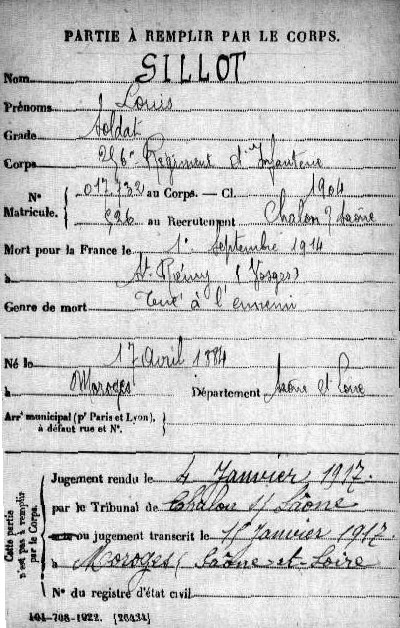 PARTIE À REMPLIR PAR LE CORPS.
Nom GILLOT
Prénoms Louis
Grade Soldat
Corps 256e Régiment d'Infanterie
N° 017.732 au Corps. — Cl. 1904
Matricule. 526 au Recrutement Chalon s/ Saône
Mort pour la France le 1er Septembre 1914
à St Rémy (Vosges)
Genre de mort Tué à l'ennemi
Né le 17 Avril 1884
à Moroges Département Saône et Loire
Arrt municipal (pr Paris et Lyon),
à défaut rue et N°.
Cette partie
n'est pas à remplir
par le Corps.
Jugement rendu le 4 Janvier 1917.
par le Tribunal de Chalon s/ Saône
ou jugement transcrit le 15 Janvier 1917.
à Moroges (Saône-et-Loire
N° du registre d'état civil
101-708-1922. [26434]